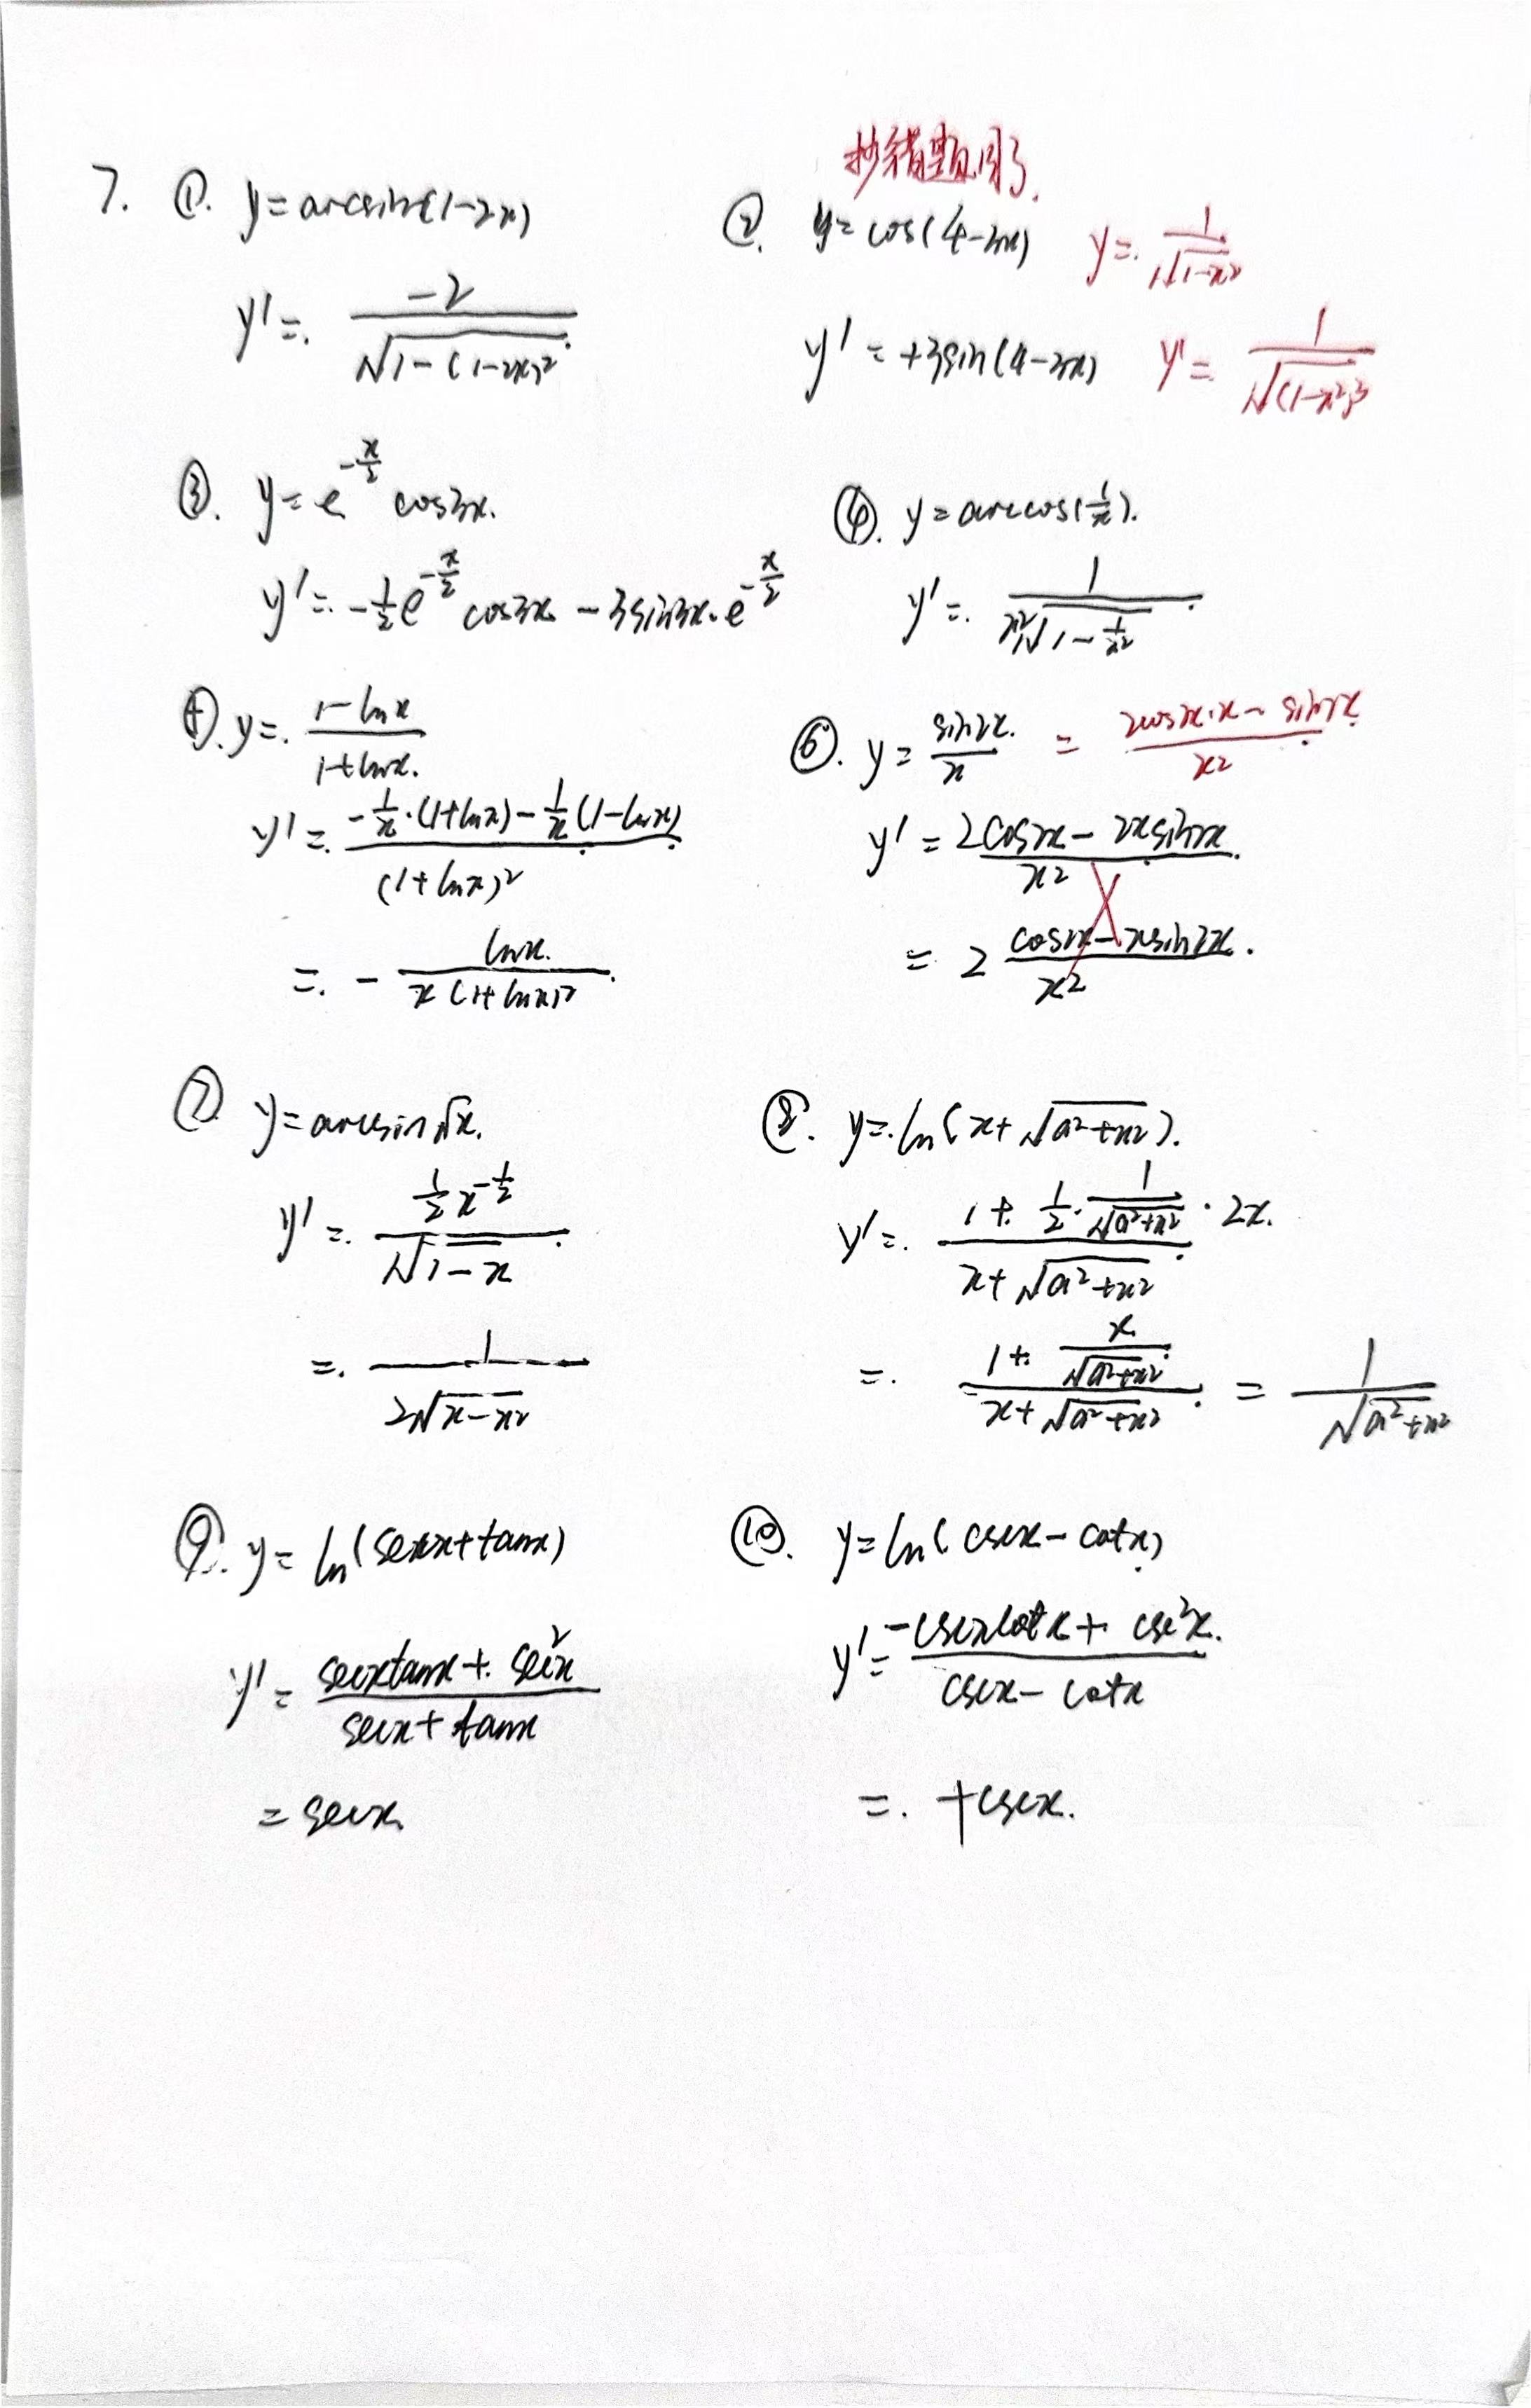 抄错题目了.
7. ①. y=arcsin(1-2x)
y'=. \frac{-2}{\sqrt{1-(1-2x)^2}}.
②. y=cos(4-3x) y=. \frac{1}{\sqrt{1-x^2}}
y'=+3sin(4-3x) y'=. \frac{1}{\sqrt{(1-x^2)^3}}
③. y=e^{-\frac{x}{2}} cos3x.
y'=. -\frac{1}{2}e^{-\frac{x}{2}} cos3x - 3sin3x·e^{-\frac{x}{2}}
④. y=arccos(\frac{1}{x}).
y'=. \frac{1}{x^2\sqrt{1-\frac{1}{x^2}}}.
⑤. y=. \frac{1-lnx}{1+lnx.}
y'=. \frac{-\frac{1}{x}·(1+lnx)-\frac{1}{x}(1-lnx)}{(1+lnx)^2}
=. -\frac{lnx.}{x(1+lnx)^2}.
⑥. y=\frac{sin2x.}{x} = \frac{2cos2x·x-sin2x}{x^2}.
y'=\frac{2cos2x-2xsin2x}{x^2}.
=2\frac{cos2x-xsin2x}{x^2}.
⑦ y=arcsin\sqrt{x}.
y'=. \frac{\frac{1}{2}x^{-\frac{1}{2}}}{\sqrt{1-x}}.
=. \frac{1}{2\sqrt{x-x^2}}
⑧. y=.ln(x+\sqrt{a^2+x^2}).
y'=. \frac{1+.\frac{1}{2}·\frac{1}{\sqrt{a^2+x^2}}·2x.}{x+\sqrt{a^2+x^2}}
=. \frac{1+.\frac{x}{\sqrt{a^2+x^2}}}{x+\sqrt{a^2+x^2}}. = \frac{1}{\sqrt{a^2+x^2}}
⑨. y=ln(secx+tanx)
y'=\frac{secxtanx+.sec^2x}{secx+tanx}
=secx
⑩. y=ln(cscx-cotx)
y'=\frac{-cscxcotx+.csc^2x.}{cscx-cotx}
=. +cscx.